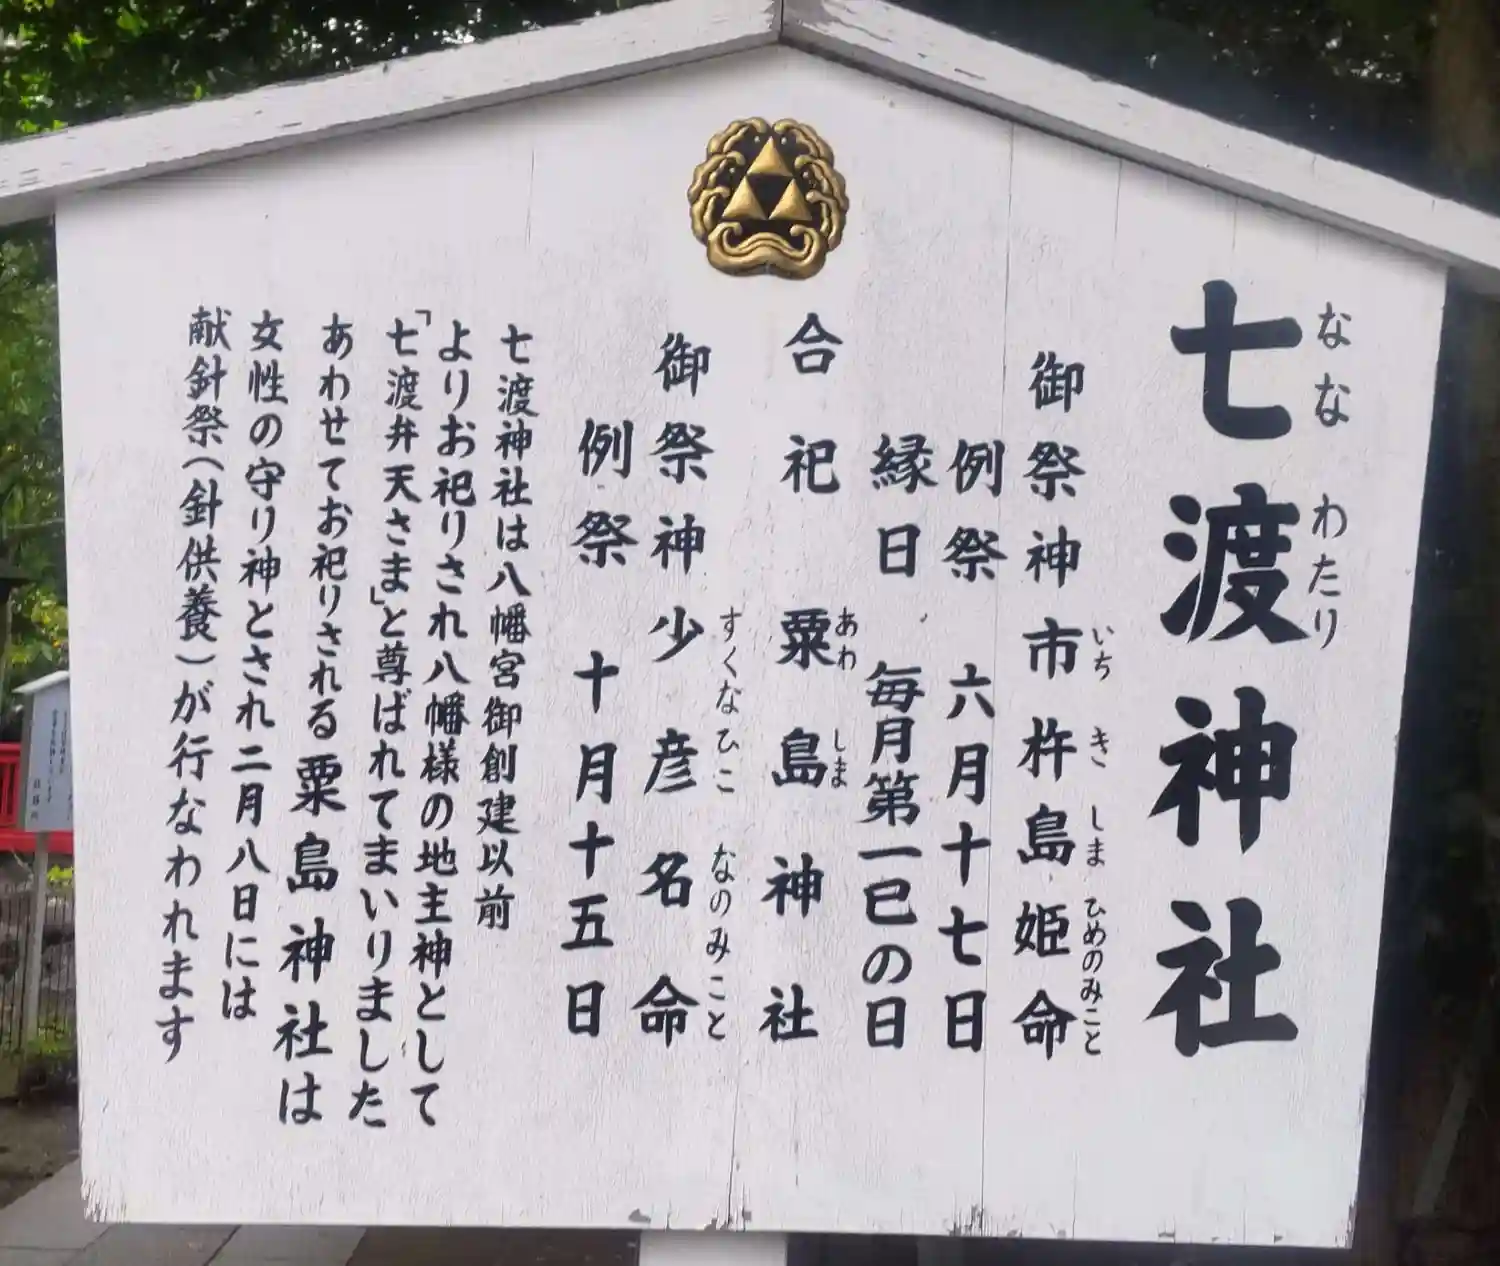 七渡神社
なな わたり
御祭神市杵島姫命
いち き しま ひめのみこと
例祭 六月十七日
縁日 毎月第一巳の日
合祀 粟島神社
あわ しま
御祭神少彦名命
すくなひこ なのみこと
例祭 十月十五日
七渡神社は八幡宮御創建以前
よりお祀りされ八幡様の地主神として
「七渡弁天さま」と尊ばれてまいりました
あわせてお祀りされる粟島神社は
女性の守り神とされ二月八日には
献針祭(針供養)が行なわれます